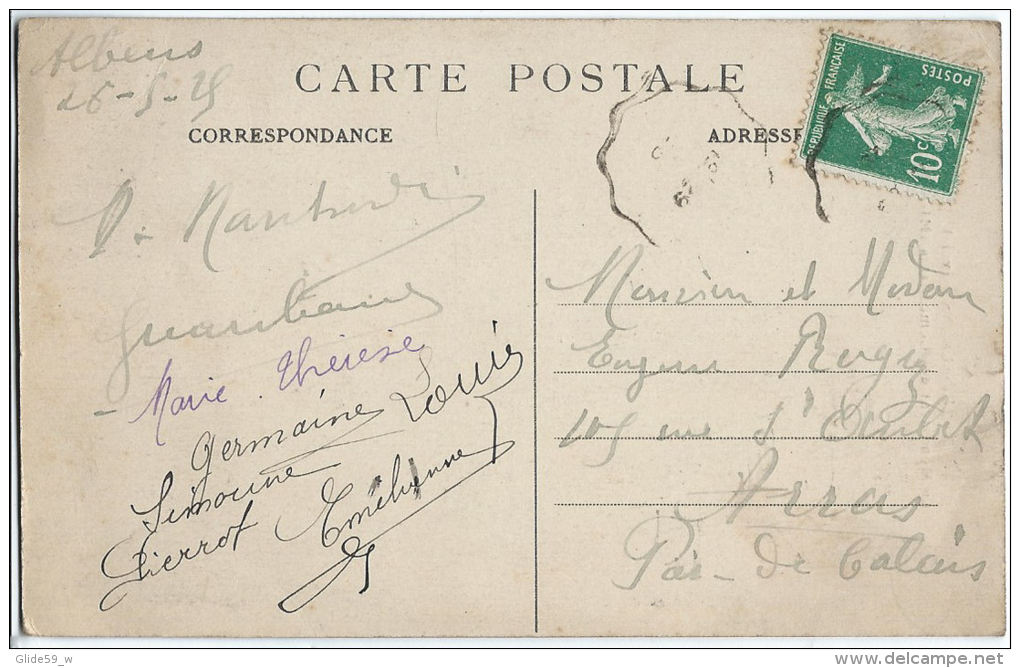 Albens
26-5-25
CARTE POSTALE
CORRESPONDANCE
ADRESSE
RÉPUBLIQUE FRANÇAISE
POSTES
10c
Marie Thérèse
Germaine Louis
Simonne
Pierrot Emélienne
Monsieur et Madame
Eugene
105 rue d'
Arras
Pas-de Calais
Glide59_w
delcampe.net